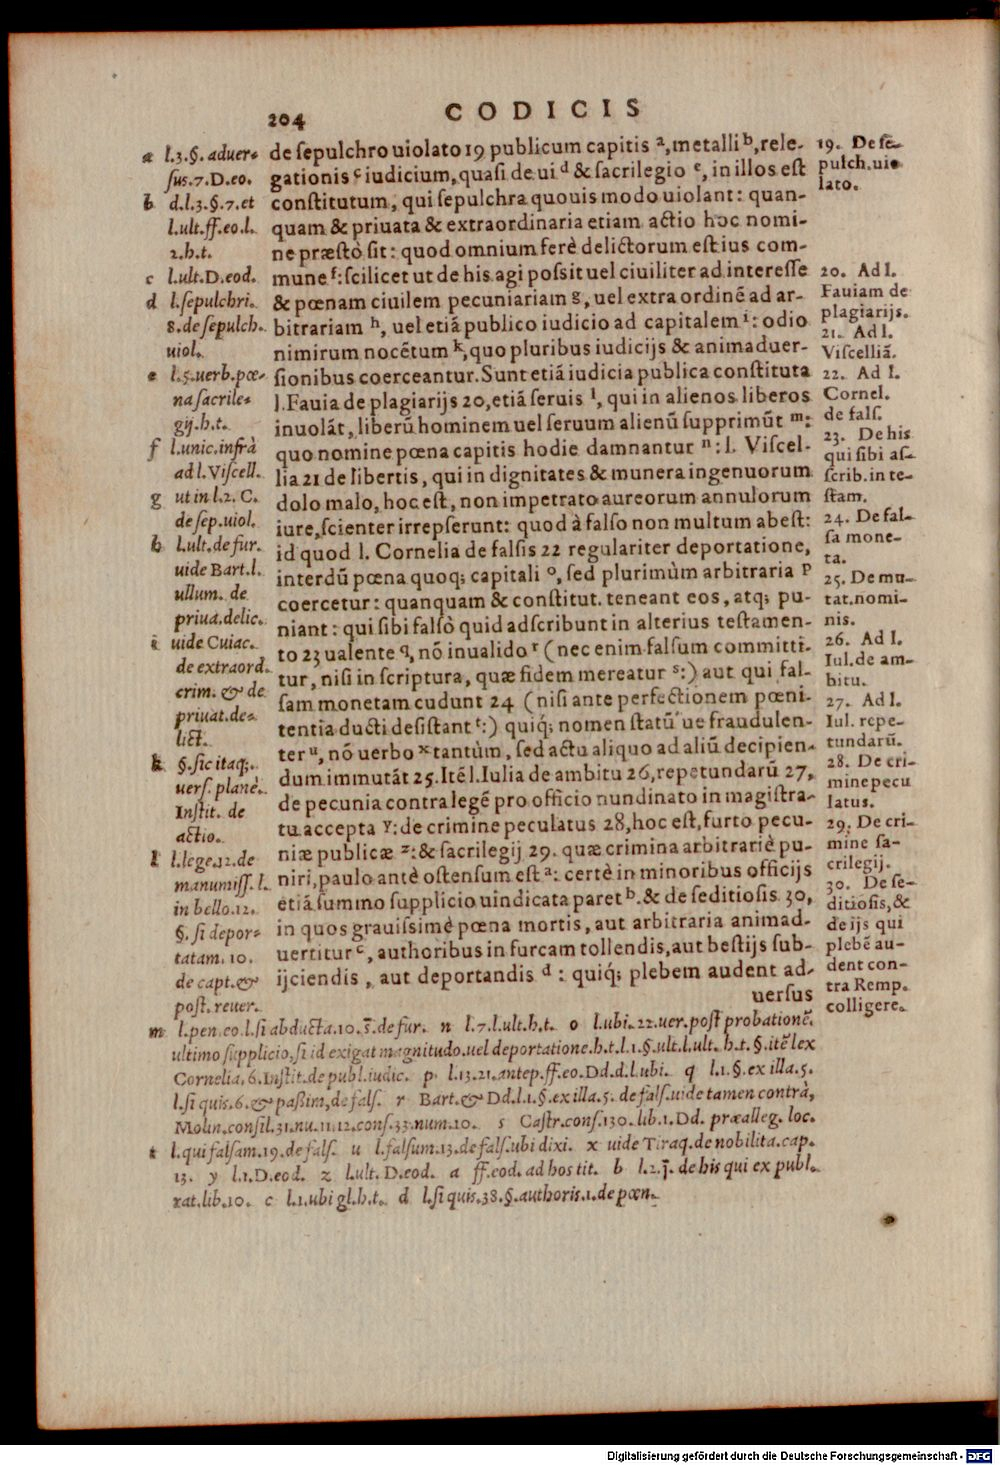 204
CODICIS
de ſepulchro uiolato 19 publicum capitis ᵃ, metalli ᵇ, rele-
gationis ᶜ iudicium, quaſi de ui ᵈ & ſacrilegio ᵉ, in illos eſt
conſtitutum, qui ſepulchra quouis modo uiolant: quan-
quam & priuata & extraordinaria etiam actio hoc nomi-
ne præſtò ſit: quod omnium ferè delictorum eſt ius com-
mune ᶠ: ſcilicet ut de his agi poſsit uel ciuiliter ad intereſſe
& pœnam ciuilem pecuniariam ᵍ, uel extra ordinē ad ar-
bitrariam ʰ, uel etiā publico iudicio ad capitalem ⁱ: odio
nimirum nocētum ᵏ, quo pluribus iudicijs & animaduer-
ſionibus coerceantur. Sunt etiā iudicia publica conſtituta
l. Fauia de plagiarijs 20, etiā ſeruis ˡ, qui in alienos liberos
inuolāt, liberū hominem uel ſeruum alienū ſupprimūt ᵐ:
quo nomine pœna capitis hodie damnantur ⁿ: l. Viſcel-
lia 21 de libertis, qui in dignitates & munera ingenuorum
dolo malo, hoc eſt, non impetrato aureorum annulorum
iure, ſcienter irrepſerunt: quod à falſo non multum abeſt:
id quod l. Cornelia de falſis 22 regulariter deportatione,
interdū pœna quoq; capitali ᵒ, ſed plurimùm arbitraria ᵖ
coercetur: quanquam & conſtitut. teneant eos, atq; pu-
niant: qui ſibi falſò quid adſcribunt in alterius teſtamen-
to 23 ualente q, nō inualido ʳ (nec enim falſum committi-
tur, niſi in ſcriptura, quæ fidem mereatur ˢ:) aut qui fal-
ſam monetam cudunt 24 (niſi ante perfectionem pœni-
tentia ducti deſiſtant ᵗ:) quiq́; nomen ſtatū́ ue fraudulen-
ter ᵘ, nō uerbo ˣ tantùm, ſed actu aliquo ad aliū decipien-
dum immutāt 25. Itē l. Iulia de ambitu 26, repetundarū 27,
de pecunia contra legē pro officio nundinato in magiſtra-
tu accepta ʸ: de crimine peculatus 28, hoc eſt, furto pecu-
niæ publicæ ᶻ: & ſacrilegij 29. quæ crimina arbitrariè pu-
niri, paulo antè oſtenſum eſt ᵃ: certè in minoribus officijs
etiā ſummo ſupplicio uindicata paret ᵇ. & de ſeditioſis 30,
in quos grauiſsimè pœna mortis, aut arbitraria animad-
uertitur ᶜ, authoribus in furcam tollendis, aut beſtijs ſub-
ijciendis, aut deportandis ᵈ: quiq́; plebem audent ad-
uerſus
a l.3.§. aduer-
ſus.7.D.eo.
b d.l.3.§.7.et
l.ult.ff.eo.l.
2.h.t.
c l.ult.D.eod.
d l.ſepulchri.
8.de ſepulch.
uiol.
e l.5.uerb.pœ-
na ſacrile-
gij.h.t.
f l.unic.infrà
ad l.Viſcell.
g ut in l.2. C.
de ſep.uiol.
h l.ult.de fur.
uide Bart.l.
ullum. de
priua.delic.
i uide Cuiac.
de extraord.
crim. & de
priuat.de-
lict.
k §.ſic itaq;.
uerſ. planè.
Inſtit. de
actio.
l l.lege.12.de
manumiſſ.l.
in bello.12.
§. ſi depor-
tatam. 10.
de capt.&
poſt.reuer.
19. De ſe-
pulch.uio
lato.
20. Ad l.
Fauiam de
plagiarijs.
21. Ad l.
Viſcelliā.
22. Ad l.
Cornel.
de falſ.
23. De his
qui ſibi aſ-
ſcrib.in te-
ſtam.
24. De fal-
ſa mone-
ta.
25. De mu-
tat.nomi-
nis.
26. Ad l.
Iul.de am-
bitu.
27. Ad l.
Iul. repe-
tundarū.
28. De cri-
mine pecu
latus.
29. De cri-
mine ſa-
crilegij.
30. De ſe-
ditioſis, &
de ijs qui
plebē au-
dent con-
tra Remp.
colligere.
m l.pen.eo.l.ſi abducta.10.s̄.de fur. n l.7.l.ult.h.t. o l.ubi.22.uer.poſt probationē.
ultimo ſupplicio, ſi id exigat magnitudo.uel deportatione.h.t.l.1.§.ult.l.ult.h.t.§.itē lex
Cornelia.6.Inſtit.de publ.iudic. p l.13.21.antep.ff.eo.Dd.d.l.ubi. q l.1.§.ex illa.5.
l.ſi quis.6.& paßim, de falſ. r Bart.& Dd.l.1.§.ex illa.5.de falſ.uide tamen contrà,
Molin.conſil.31.nu.11.12.conſ.33.num.10. s Caſtr.conſ.130.lib.1.Dd. præalleg. loc.
t l.qui falſam.19.de falſ. u l.falſum.13.de falſ.ubi dixi. x uide Tiraq.de nobilita.cap.
13. y l.1.D.eod. z l.ult.D.eod. a ff.eod. ad hos tit. b l.2.j̄.de his qui ex publ.
rat.lib.10. c l.1.ubi gl.h.t. d l.ſi quis.38.§.authoris.1.de pœn.
Digitalisierung gefördert durch die Deutsche Forschungsgemeinschaft - DFG